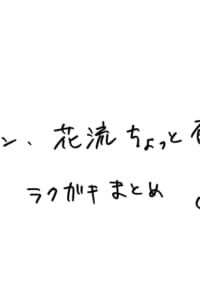 ン、花流ちょっと
ラクガキまとめ